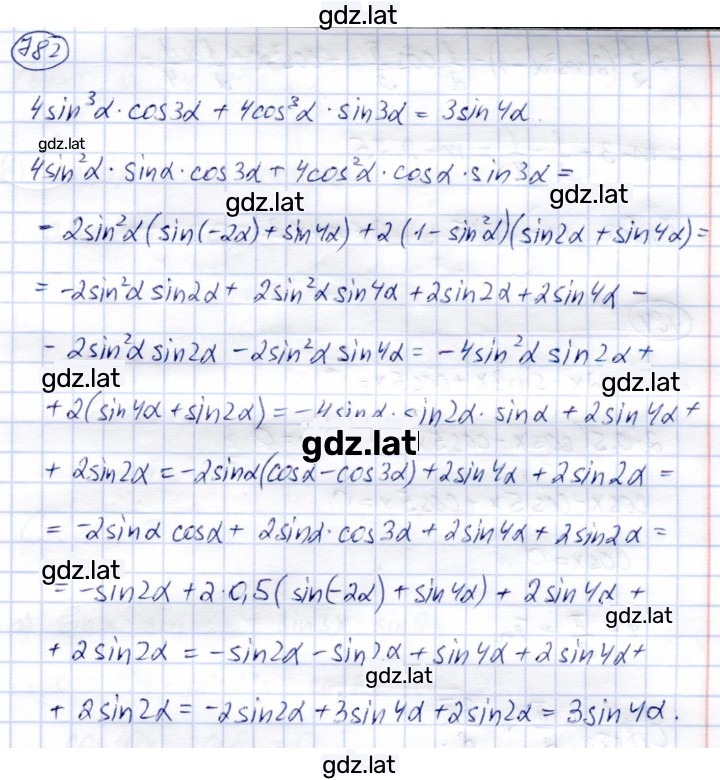 gdz.lat
782
4sin³α·cos3α + 4cos³α·sin3α = 3sin4α.
gdz.lat
4sin²α·sinα·cos3α + 4cos²α·cosα·sin3α =
gdz.lat
gdz.lat
- 2sin²α(sin(-2α)+sin4α)+2(1-sin²α)(sin2α+sin4α)=
= -2sin²α sin2α + 2sin²α sin4α + 2sin2α + 2sin4α -
- 2sin²α sin2α - 2sin²α sin4α = -4sin²α sin2α +
gdz.lat
gdz.lat
+ 2(sin4α + sin2α) = -4sinα·sin2α·sinα + 2sin4α +
gdz.lat
+ 2sin2α = -2sinα(cosα - cos3α) + 2sin4α + 2sin2α =
= -2sinα cosα + 2sinα·cos3α + 2sin4α + 2sin2α =
gdz.lat
= -sin2α + 2·0,5(sin(-2α) + sin4α) + 2sin4α +
gdz.lat
+ 2sin2α = -sin2α - sin2α + sin4α + 2sin4α +
gdz.lat
+ 2sin2α = -2sin2α + 3sin4α + 2sin2α = 3sin4α.
gdz.lat